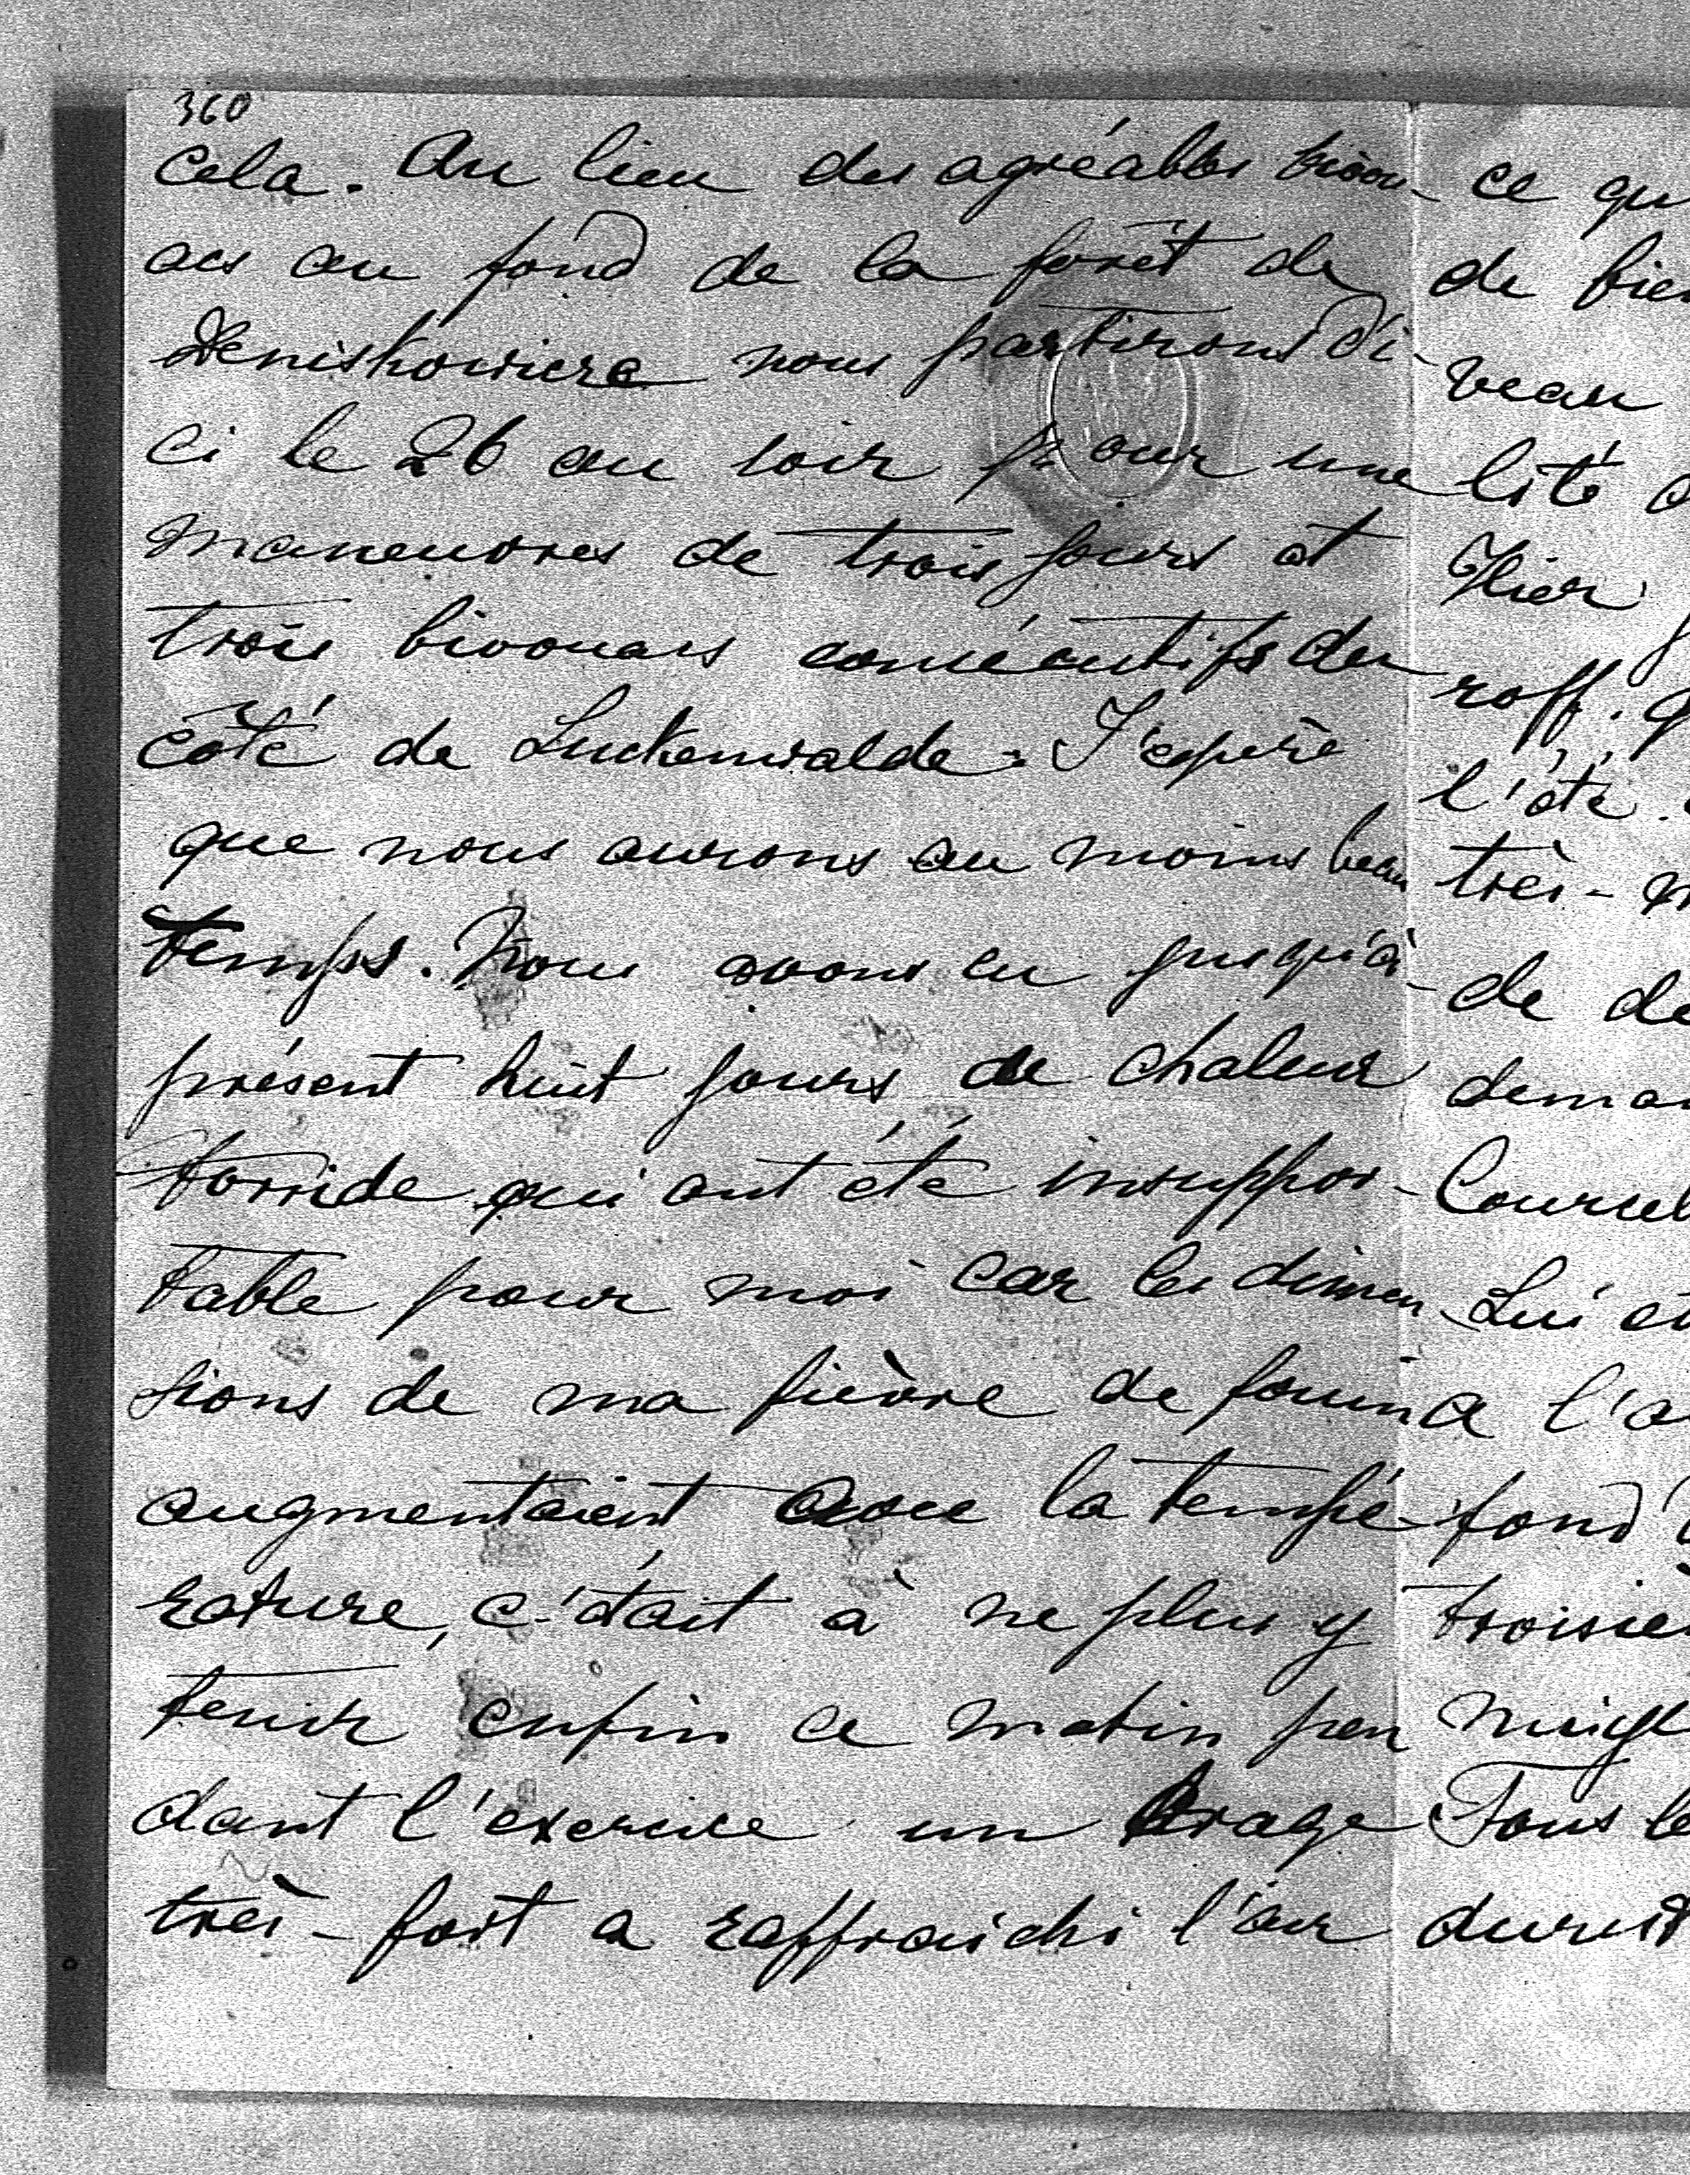 360
cela. Au lieu des agréables bivou-
acs au fond de la forêt de
nous partirons d'i-
ci le 26 au soir pour une
maneuvres de trois jours et
trois bivouacs consécutifs du
côté de Luckenwalde. J'espère
que nous aurons au moins beau
temps. Nous avons eu jusqu'à-
présent huit jours de chaleur
torride qui ont été insuppor-
table pour moi car les dimen-
sions de ma fièvre de foin
augmentaient avec la tempé-
rature, c'était à ne plus y
tenir enfin ce matin pen
dant l'exercice un orage
très-fort a raffraichi l'air
ce qu
de bien
veau
lité
Hier
roff.
l'été.
très-
de de
deman
Coursel
Lui et
a l'a
fond
troisiè
Tous le